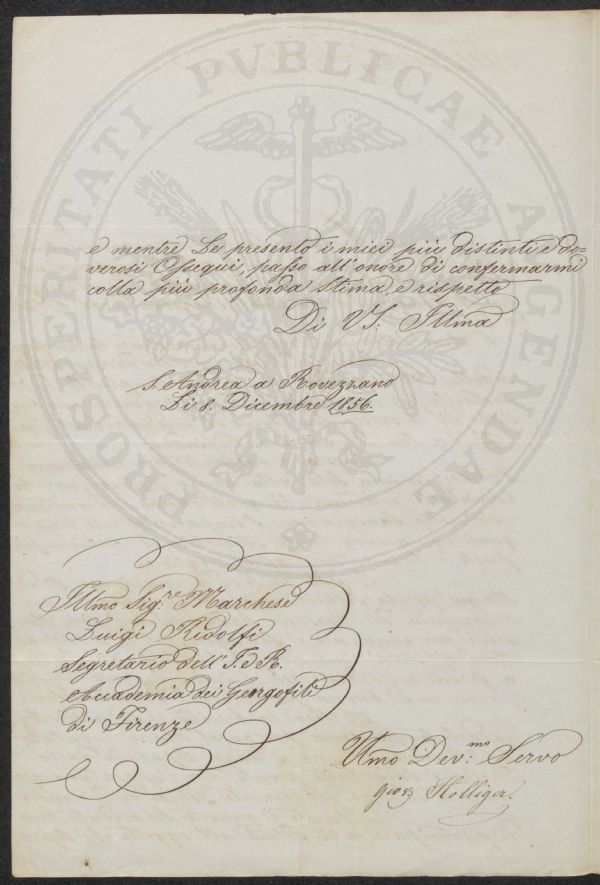 PROSPERITATI PVBLICAE AVGENDAE
e mentre Le presento i miei più distinti e do=
verosi Ossequi, passo all'onore di confermarmi
colla più profonda stima, e rispetto
Di VS: Illma
S. Andrea a Rovezzano
Li 8. Dicembre 1856.
Illmo Sig:re Marchese
Luigi Ridolfi
Segretario dell' I. e R.
Accademia dei Georgofili
di Firenze
Umo Dev:mo Servo
Holliger.